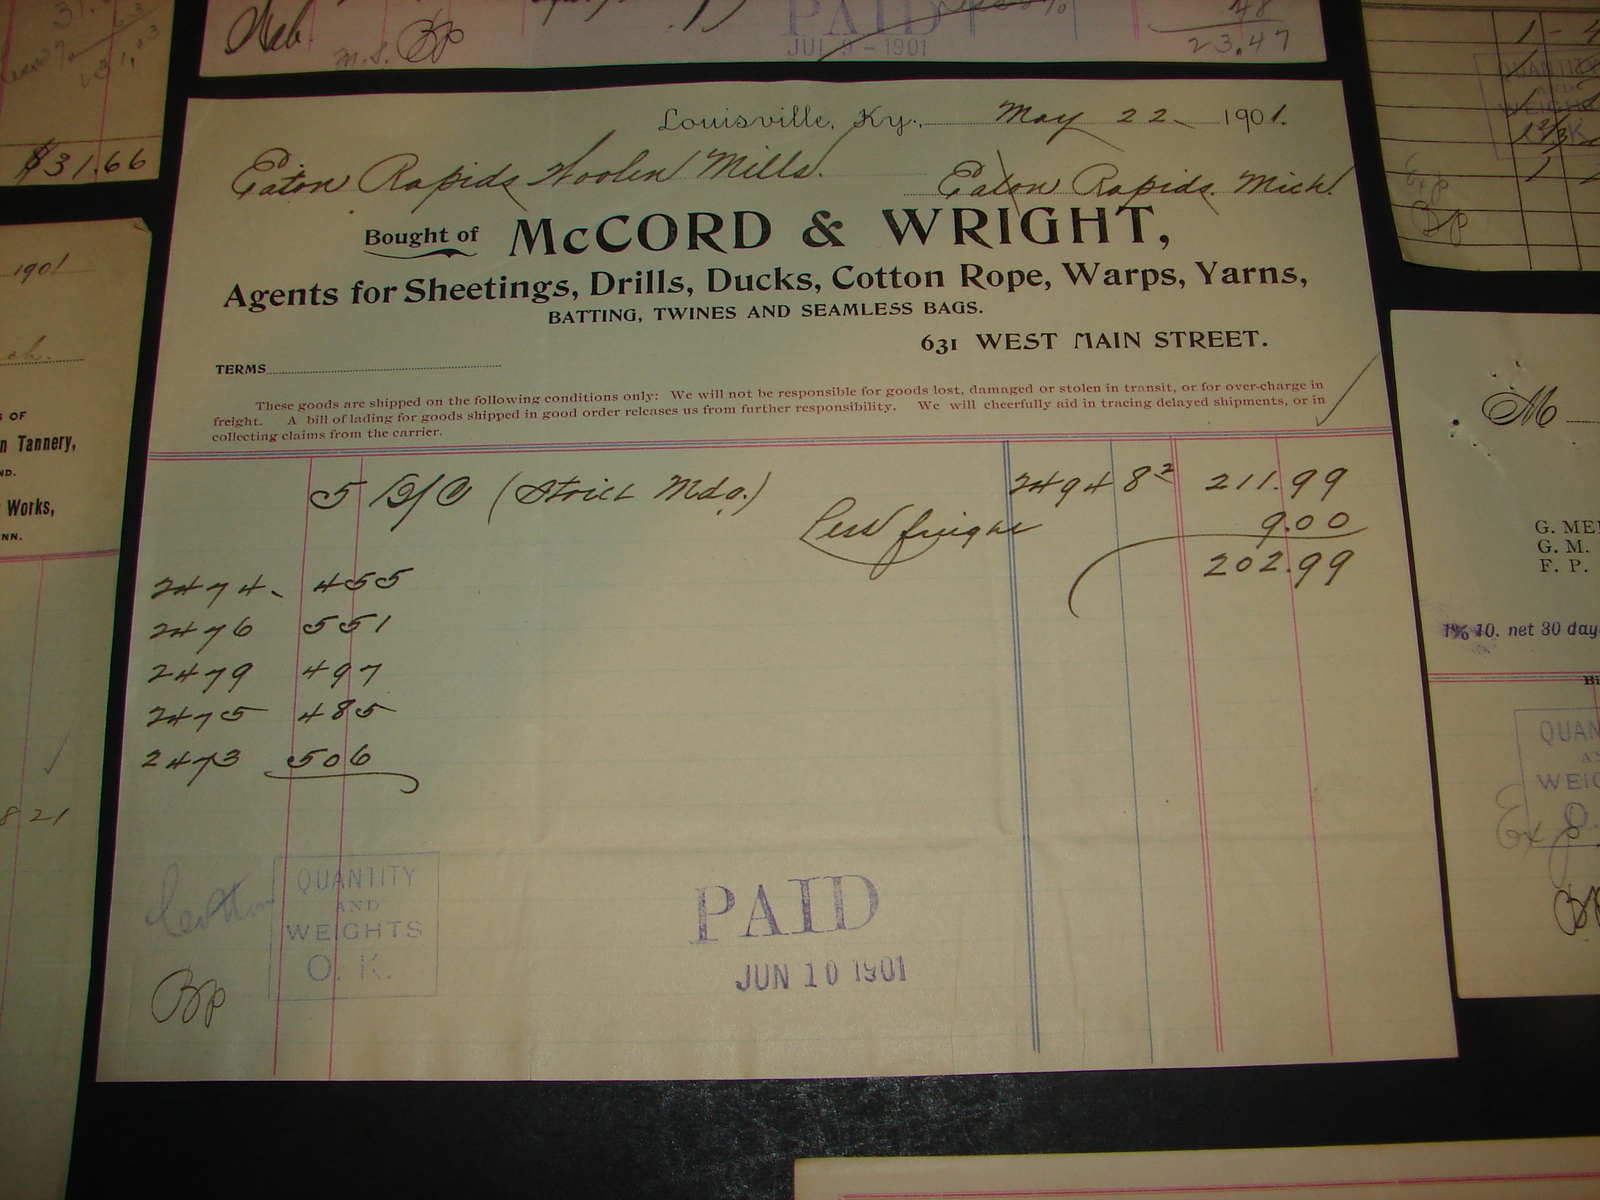 $31.66
PAID
JUL 9 - 1901
23.47
M.S. Bp
Louisville, Ky., May 22 1901.
Eaton Rapids Woolen Mills. Eaton Rapids. Mich.
Bought of McCORD & WRIGHT,
Agents for Sheetings, Drills, Ducks, Cotton Rope, Warps, Yarns,
BATTING, TWINES AND SEAMLESS BAGS.
631 WEST MAIN STREET.
TERMS
These goods are shipped on the following conditions only: We will not be responsible for goods lost, damaged or stolen in transit, or for over-charge in
freight. A bill of lading for goods shipped in good order releases us from further responsibility. We will cheerfully aid in tracing delayed shipments, or in
collecting claims from the carrier.
5 B/C (Strict Mdg.) 2494 8½ 211.99
Less freight 9.00
202.99
2474 455
2476 551
2479 497
2475 485
2473 506
Cotton
QUANTITY
AND
WEIGHTS
O. K.
Bp
PAID
JUN 10 1901
1901
ch.
S OF
n Tannery,
ND.
Works,
NN.
8 21
QUANTITY
AND
WEIGHTS
Bp
M
G. ME
G. M.
F. P.
1% 10. net 30 day
QUAN
A
WEIG
O.
Ex
Bp